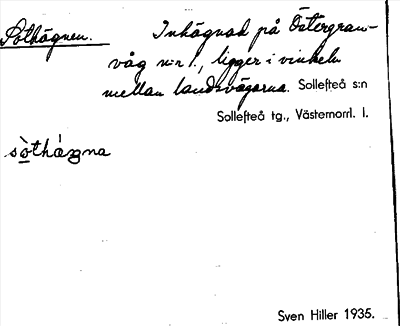 Sothägnen. Inhägnad på Östergran-
våg n:r 1., ligger i vinkeln
mellan landsvägarna. Sollefteå s:n
Sollefteå tg., Västernorrl. l.
Sven Hiller 1935.